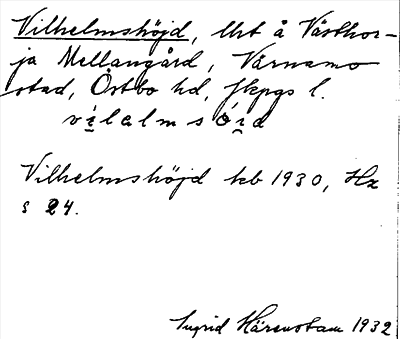 Vilhelmshöjd, lht å Västhor-
ja Mellangård, Värnamo
stad, Östbo hd, Jkpgs l.
Vilhelmshöjd kb 1930, Hx
s 24.
Ingrid Härenstam 1932